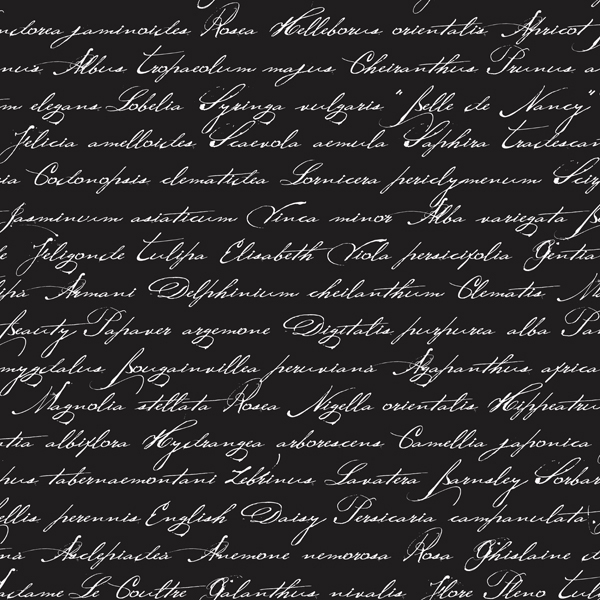 ndorea jaminoides Rosea Helleborus orientalis Apricot
nus Albus Tropaeolum majus Cheiranthus Prunus a
m elegans Lobelia Syringa vulgaris "Belle de Nancy"
Felicia amelloides Scaevola aemula Saphira tradescan
ia Codonopsis clematidea Lornicera periclymenum Scir
Jasminum asiaticum Vinca minor Alba variegata B
Feligonde Tulipa Elisabeth Viola persicifolia Gentia
lipa Armani Delphinium cheilanthum Clematis M
Beauty Papaver argemone Digitalis purpurea alba Pa
mygdalus Bougainvillea peruviana Agapanthus africa
Magnolia stellata Rosea Nigella orientalis Hippeatru
ntia albiflora Hydrangea arborescens Camellia japonica
pus tabernaemontani Zebrinus Lavatera Barnsley Sorbar
ellis perennis English Daisy Persicaria campanulata
na Asclepiadea Anemone nemorosa Rosa Ghislaine d
adame Le Coultre Galanthus nivalis Flore Pleno Tul